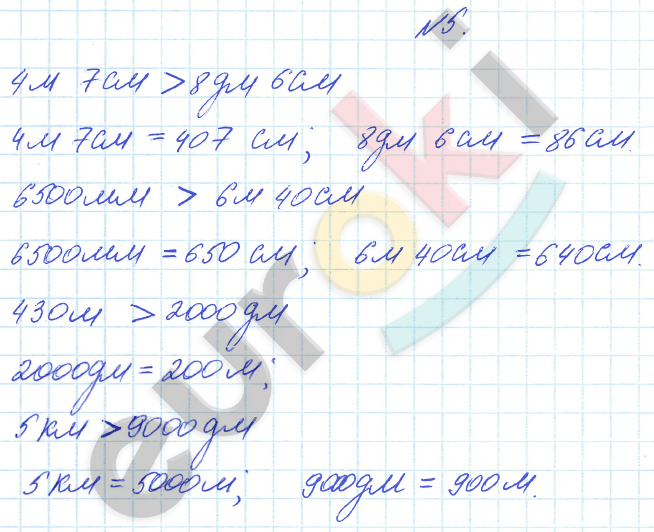 №5.
4м 7см > 8дм 6см
4м 7см = 407 см; 8дм 6см = 86см.
6500мм > 6м 40см
6500мм = 650 см; 6м 40см = 640см.
430м > 2000дм
2000дм = 200м;
5км > 9000дм
5км = 5000м; 9000дм = 900м.
euroki